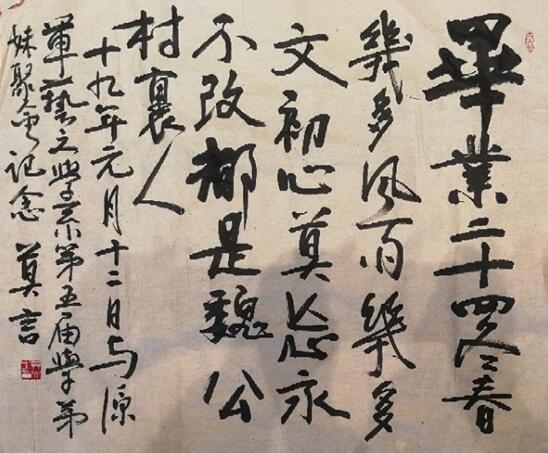 畢業二十四冬春
幾多风雨幾多
文初心莫忘永
不改都是魏公
村裏人
十九年元月十二日与原
軍藝文学系第五届学弟
妹聚会记念 莫言